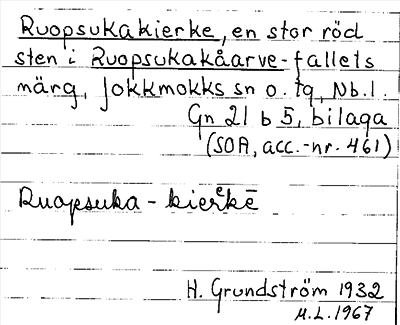 Ruopsukakierke, en stor röd
sten i Ruopsukakåarve-fallets
märg, Jokkmokks sn o. tg, Nb.l.
Gn 21 b 5, bilaga
(SOA, acc.-nr. 461)
Ruopsuka - kierkē
H. Grundström 1932
M.L. 1967